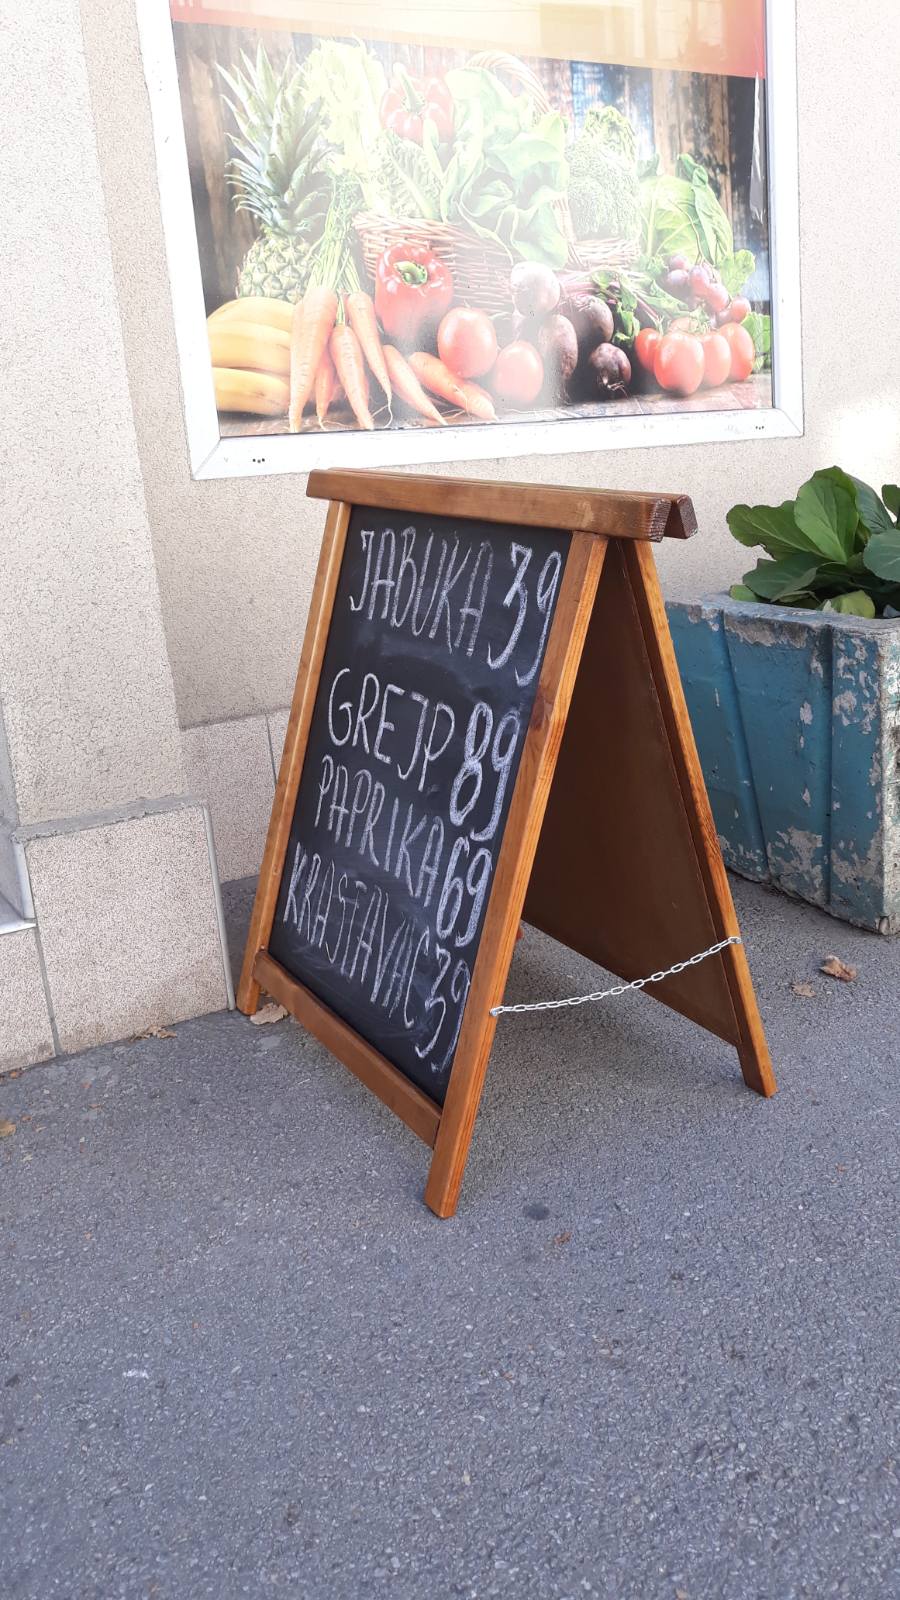 JABUKA 39
GREJP 89
PAPRIKA 69
KRASTAVAC 39